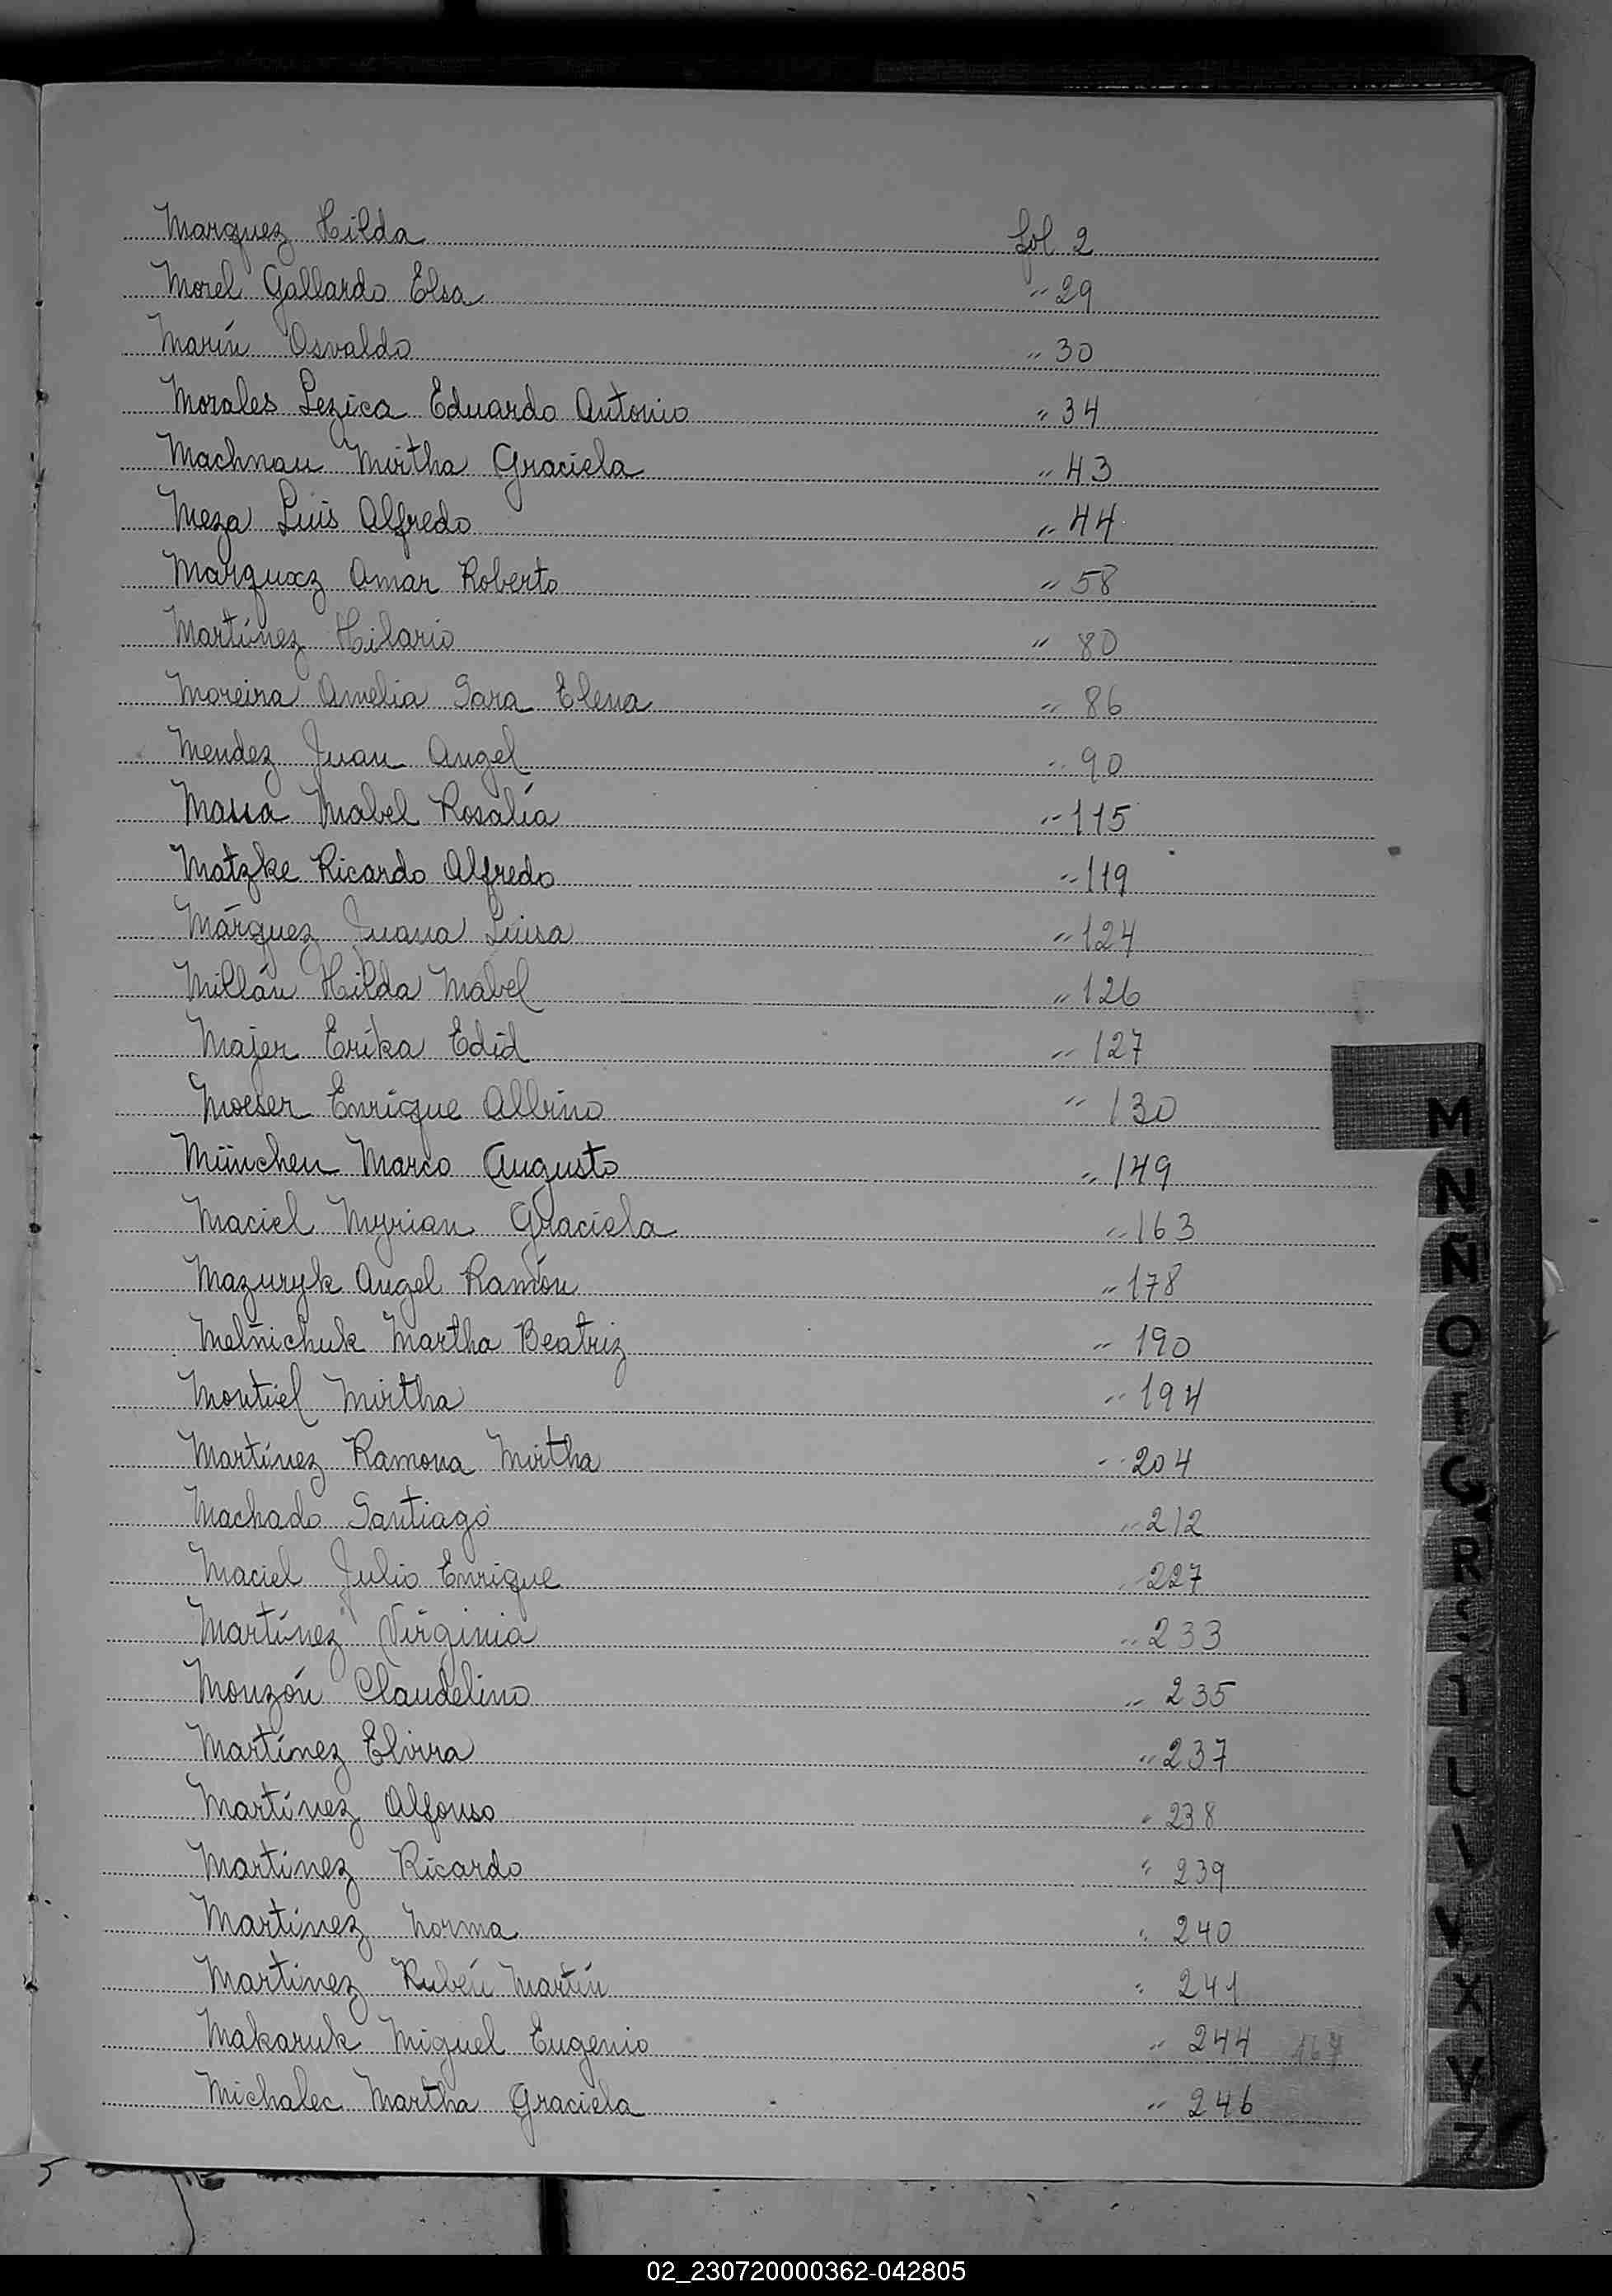 Marquez Hilda fol 2
Morel Gallardo Elsa " 29
Marín Osvaldo " 30
Morales Lezica Eduardo Antonio " 34
Machnau Mirtha Graciela " 43
Meza Luis Alfredo " 44
Marquez Omar Roberto " 58
Martínez Hilario " 80
Moreira Amelia Sara Elena " 86
Mendez Juan Angel " 90
Massa Mabel Rosalía " 115
Matzke Ricardo Alfredo " 119
Márquez Juana Luisa " 124
Millán Hilda Mabel " 126
Majer Erika Edid " 127
Moeser Enrique Albino " 130
München Marco Augusto " 149
Maciel Myrian Graciela " 163
Mazuryk Angel Ramón " 178
Melnichuk Martha Beatriz " 190
Montiel Mirtha " 194
Martínez Ramona Mirtha " 204
Machado Santiago " 212
Maciel Julio Enrique " 227
Martínez Virginia " 233
Monzón Claudelino " 235
Martínez Elvira " 237
Martínez Alfonso " 238
Martínez Ricardo " 239
Martínez Norma " 240
Martinez Rubén Martín " 241
Makaruk Miguel Eugenio " 244 167
Michalec Martha Graciela " 246
M
N
Ñ
O
R
V
X
Y
Z
02_230720000362-042805